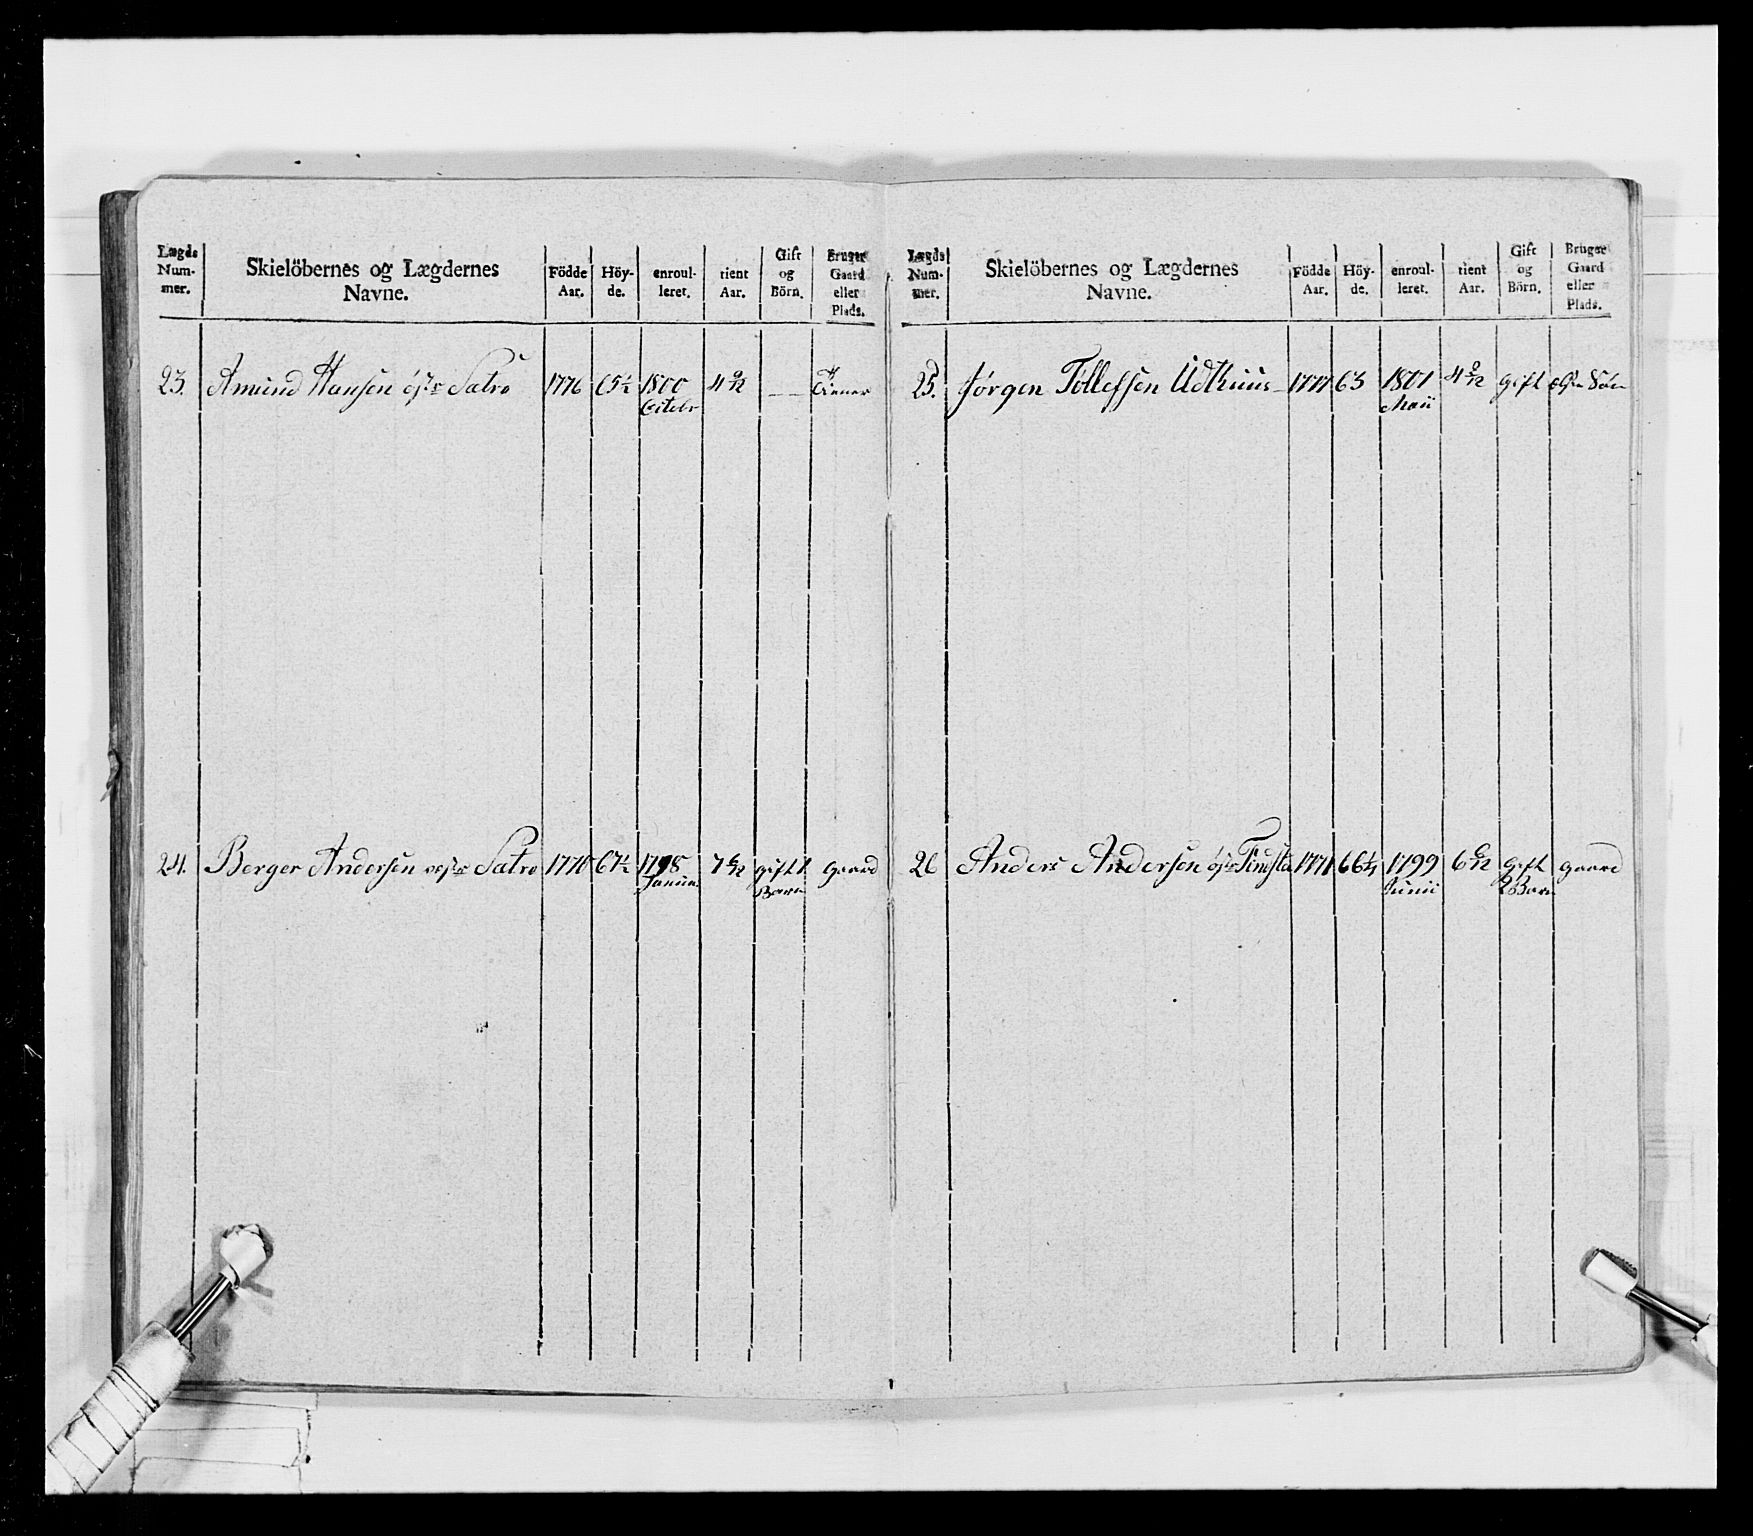 Lægds Num-mer. Skielöbernes og Lægdernes Navne. Födde Aar. Höy-de. enroul-leret. tient Aar. Gift og Börn. Bruger Gaard eller Plads.
23. Amund Hansen östr Satre 1776 65½ 1800 4 9/12 — Tienner
Octobr
24. Berger Andersen vestr Satre 1770 67½ 1798 7 6/12 gift 1 gaard
Januar Barn
Lægds Num-mer. Skielöbernes og Lægdernes Navne. Födde Aar. Höy-de. enroul-leret. tient Aar. Gift og Börn. Bruger Gaard eller Plads.
25. Jørgen Tollefssen Udthuus 1777 63 1801 4 2/12 gift
Maii
26 Anders Andersen östr 1771 66¼ 1799 6 6/12 gift gaard
Junii 2 Barn